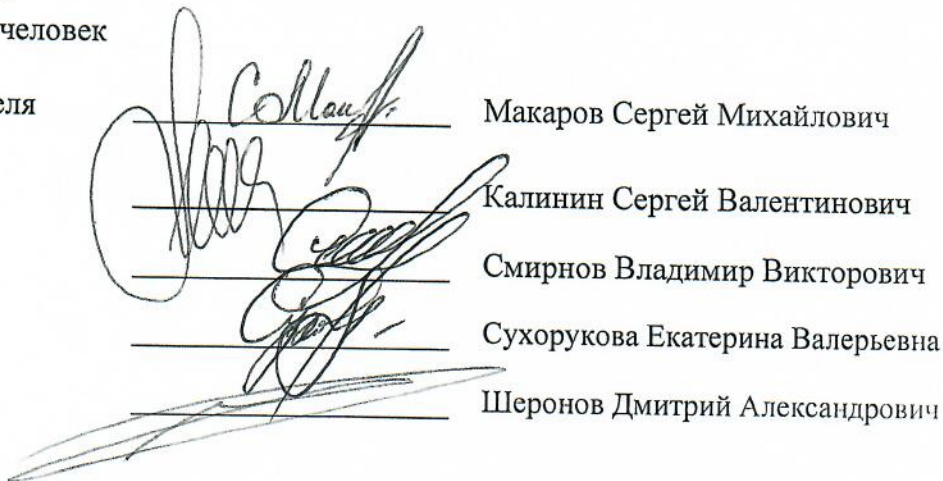 человек
еля
Макаров Сергей Михайлович
Калинин Сергей Валентинович
Смирнов Владимир Викторович
Сухорукова Екатерина Валерьевна
Шеронов Дмитрий Александрович